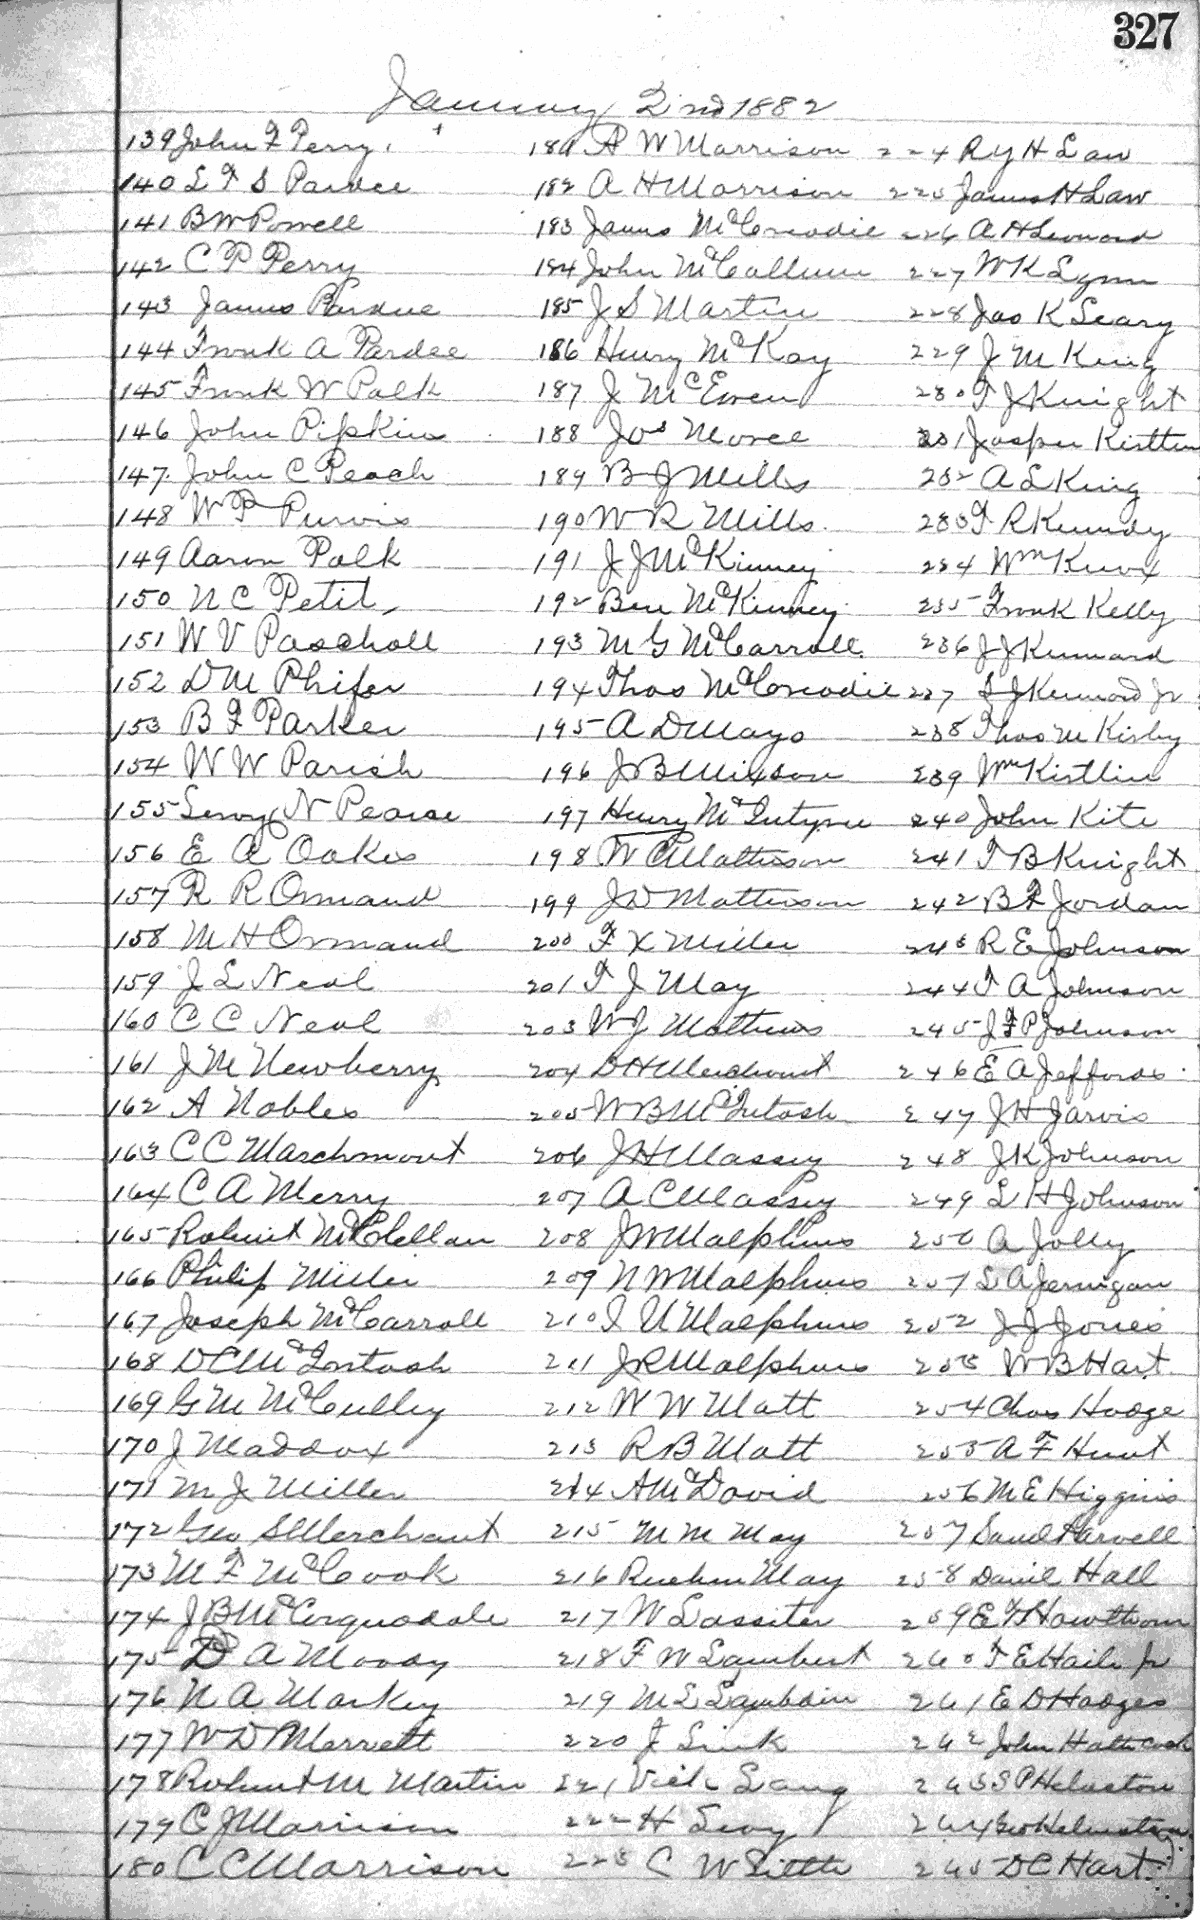 327
January 2nd 1882
139 John F Perry
140 L F S Pardee
141 B W Powell
142 C P Perry
143 James Pardue
144 Frank A Pardee
145 Frank W Polk
146 John Pipkin
147 John C Peach
148 W P Purvis
149 Aaron Polk
150 N C Petit
151 W V Pascholl
152 D M Phifer
153 B F Parker
154 W W Parish
155 Leroy N Pearce
156 E A Oakes
157 R R Ormand
158 M H Ormand
159 J L Neal
160 C C Neal
161 J M Newberry
162 A Nobles
163 C C Marchmont
164 C A Merry
165 Robert McClellan
166 Philip Miller
167 Joseph McCarroll
168 D C McIntosh
169 G M McCulley
170 J Maddox
171 M J Miller
172 Geo S Merchant
173 M F McCook
174 J B McCorquodale
175 D A Moody
176 N A Markey
177 W D Merrett
178 Robert M Martin
179 C J Morrison
180 C C Morrison
181 A W Morrison
182 A H Morrison
183 James McCreadie
184 John McCallum
185 J S Martin
186 Henry McKay
187 J McEwen
188 Jos Moree
189 B J Mills
190 W R Mills
191 J J McKinney
192 Ben McKinney
193 M G McCarroll
194 Thos McCreadie
195 A D Mayo
196 J B Mixson
197 Henry McIntyre
198 W C Matteson
199 J D Matteson
200 F X Miller
201 T J May
203 W J Mathews
204 D H Merchant
205 W B McIntosh
206 J H Massey
207 A C Massey
208 J W Malphurs
209 N W Malphurs
210 I U Malphurs
211 J R Malphurs
212 W W Matt
213 R B Matt
214 A McDavid
215 M M May
216 Ruehm May
217 W Lassiter
218 F W Lambert
219 M L Lambdin
220 J Link
221 Vich Lang
222 H Levy
223 C W Little
224 R Y H Law
225 James H Law
226 A H Leonard
227 W K Lynn
228 Jas K Leary
229 J M King
230 T J Knight
231 Jasper Kistlin
232 A L King
233 F R Kennedy
234 Wm Knox
235 Frank Kelly
236 J J Kennard
237 S J Kennard Jr
238 Thos M Kirby
239 Wm Kistlin
240 John Kite
241 T B Knight
242 B F Jordan
243 R E Johnson
244 T A Johnson
245 J F P Johnson
246 E A Jeffords
247 J H Jarvis
248 J K Johnson
249 L H Johnson
250 A Jolly
251 L A Jernigan
252 J J Jones
253 W B Hart
254 Chas Hodge
255 A F Hunt
256 M E Higgins
257 Saml Harvell
258 Daniel Hall
259 E T Hawthorn
260 T E Haile Jr
261 E D Hodges
262 John Hathcock
263 S P Helveston
264 Geo Helveston
265 D C Hart